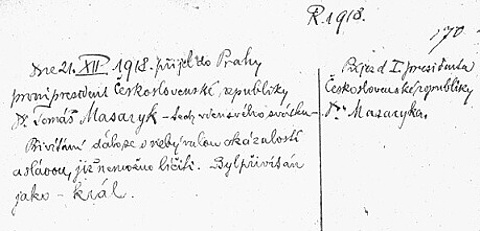 R. 1918.
170
Dne 21. XII 1918. přijel do Prahy
první president Československé republiky
Dr. Tomáš Masaryk -
Přivítání dálo se s nebývalou okázalostí
a slávou, již nemožno líčiti. Byl přivítán
jako - král.
Příjezd I. presidenta
Československé republiky
Dr. Masaryka.